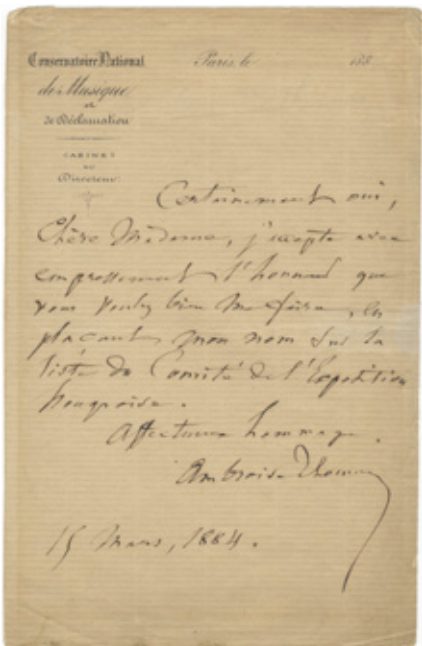 Conservatoire National
de Musique
et
de Déclamation
CABINET
DU
Directeur
Paris, le 188
Certainement oui,
Chère Madame, j'accepte avec
empressement l'honneur que
vous voulez bien me faire, en
plaçant mon nom sur la
liste du Comité de l'Exposition
hongroise.
Affectueux hommage.
Ambroise Thomas
15 Mars, 1884.